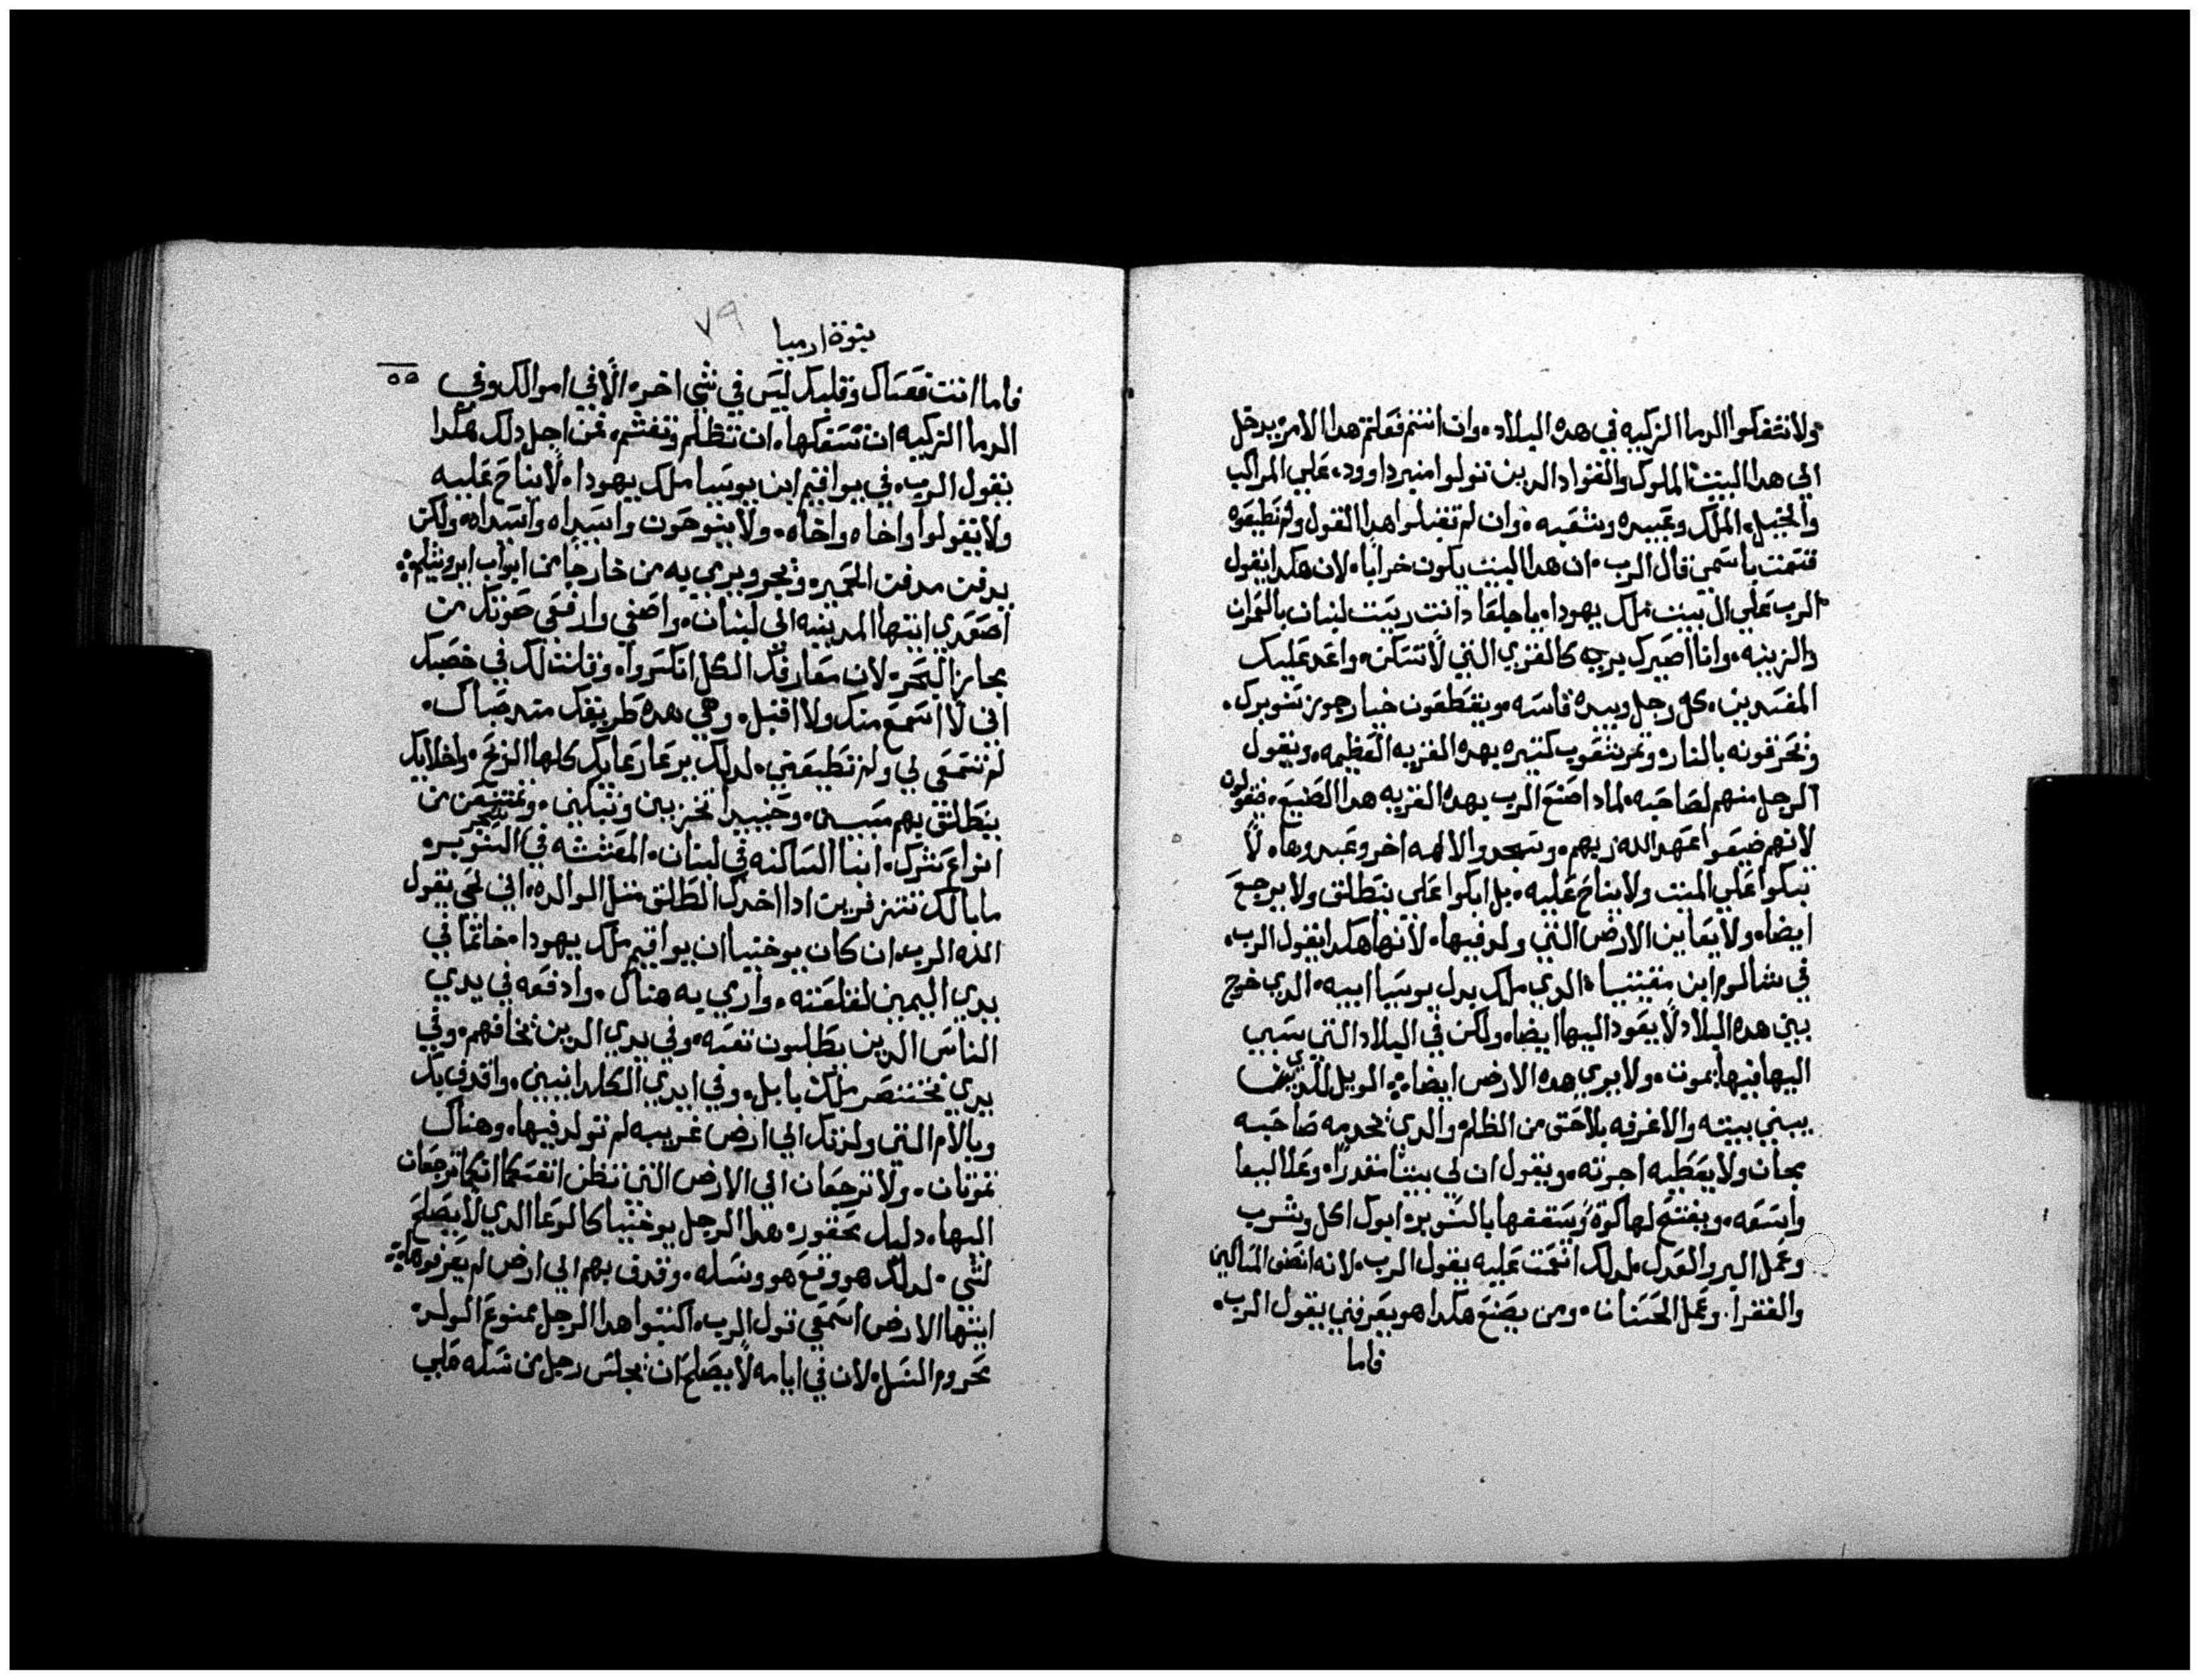 ولا تسفكوا الدما الزكيه في هده البلاد. وان انتم فعلتم هدا الامر يدخل
الي هدا البيت الملوك والقواد الدين تولوا منبر داوود. علي المراكب
والخيل. الملك وعبيده وشعبه. وان لم تقبلوا هدا القول ولم تطيعوه
قسمت باسمي قال الرب. ان هدا البيت يكون خرابا. لان هكدا يقول
الرب علي ال بيت ملك يهودا. يا جلعاد انت ريت لبنان بالموان
والزينه. وانا اصيرك بريه كالقري التي لا تسكن. واعد عليك
المفسدين. كل رجل وبيده فاسه. ويقطعون خيار جوز تنوبرك.
ويحرقونه بالنار. وتمر شعوب كثيره بهده القريه العظيمه. ويقول
الرجل منهم لصاحبه. لمادا صنع الرب بهده القريه هدا الصنيع. فيقولون
لانهم ضيعوا عهد الله ربهم. وسجدوا لالهه اخر وعبدوها. لا
تبكوا علي الميت ولا يناح عليه. بل ابكوا علي ينطلق ولا يرجع
ايضا. ولا يعاين الارض التي ولد فيها. لانها هكدا يقول الرب.
في شالوم ابن يوسيا. الدي ملك بدل يوسيا ابيه. الدي خرج
بين هده البلاد لا يعود اليها ايضا. ولكن في البلاد التي سبي
اليها فيها يموت. ولا يري هده الارض ايضا. الويل للدي
يبني بيته والاغرفه بلا حق من الظلم والدي يخدمه صاحبه
مجان ولا يعطيه اجرته. ويقول ان لي بيتا مقدرا. وعلاليها
واسعه. ويفتح لها كوة ويسقفها بالشوبر. ابوك اكل وشرب
وعمل البر والعدل. لدلك انعمت عليه يقول الرب. لانه انصف المساكين
والفقرا. وعمل الحسنات. ومن يصنع هكدا هو يعرفني يقول الرب.
فاما
نبوة ارميا
٧٩
٥٥
فاما انت فعيناك وقلبك ليس في شي اخر. الا في اموالك وفي
الدما الزكيه ان تسفكها. ان تظلم وتغشم. فمن اجل دلك هكدا
يقول الرب. في يواقيم ابن يوسيا ملك يهودا. لا يناح عليه
ولا يقولوا واخاه واخاه. ولا ينوحون واسيداه واسيداه. ولكن
يدفن مدفن الحمير. ويجر ويرمي به من خارجا من ابواب ايروشليم.
اصعدي ايتها المدينه الي لبنان. واصغي وارفعي صوتك من
مجاز البحر. لان معارفك الكل انكسروا. وقلت لك في خصبك
اني لا اسمع منك ولا اقبل. وهي هده طريقك مند صباك.
لم تسمعي لي ولم تطيعيني. لدلك يرعا رعايك كلها الريح. واخلايك
ينطلق بهم مسبيين. وحينيد تخزيين وتبكين. وتمتنعين من
انواع شرك. ايتها الساكنه في لبنان. المعششه في شجر الشوبر.
ما بالك تتزفرين ادا اخدك الطلق مثل الوالده. اني لحي يقول
الله الرب. ان كان يوخنيا ان يواقيم ملك يهودا. خاتما في
يدي اليمين لقلعته. وارمي به هناك. وادفعه في يدي
الناس الدين يطلبون نفسه. وفي يدي الدين يخافهم. وفي
يدي بختنصر ملك بابل. وفي ايدي الكلدانيين. واقدف بك
وبالام التي ولدتك الي ارض غريبه لم تولد فيها. وهناك
تموتان. ولا ترجعان الي الارض التي تظن انفسكما انكما ترجعان
اليها. دليل محقور. هدا الرجل يوخنيا كالوعا الدي لا يصلح
لشي. لدلك هو وقع هو ونسله. وقدف بهم الي ارض لم يعرفوها.
ايتها الارض اسمعي قول الرب. اكتبوا هدا الرجل ممنوع الولد.
محروم النسل. لان في ايامه لا يصلح ان يجلس رجل من نسله علي